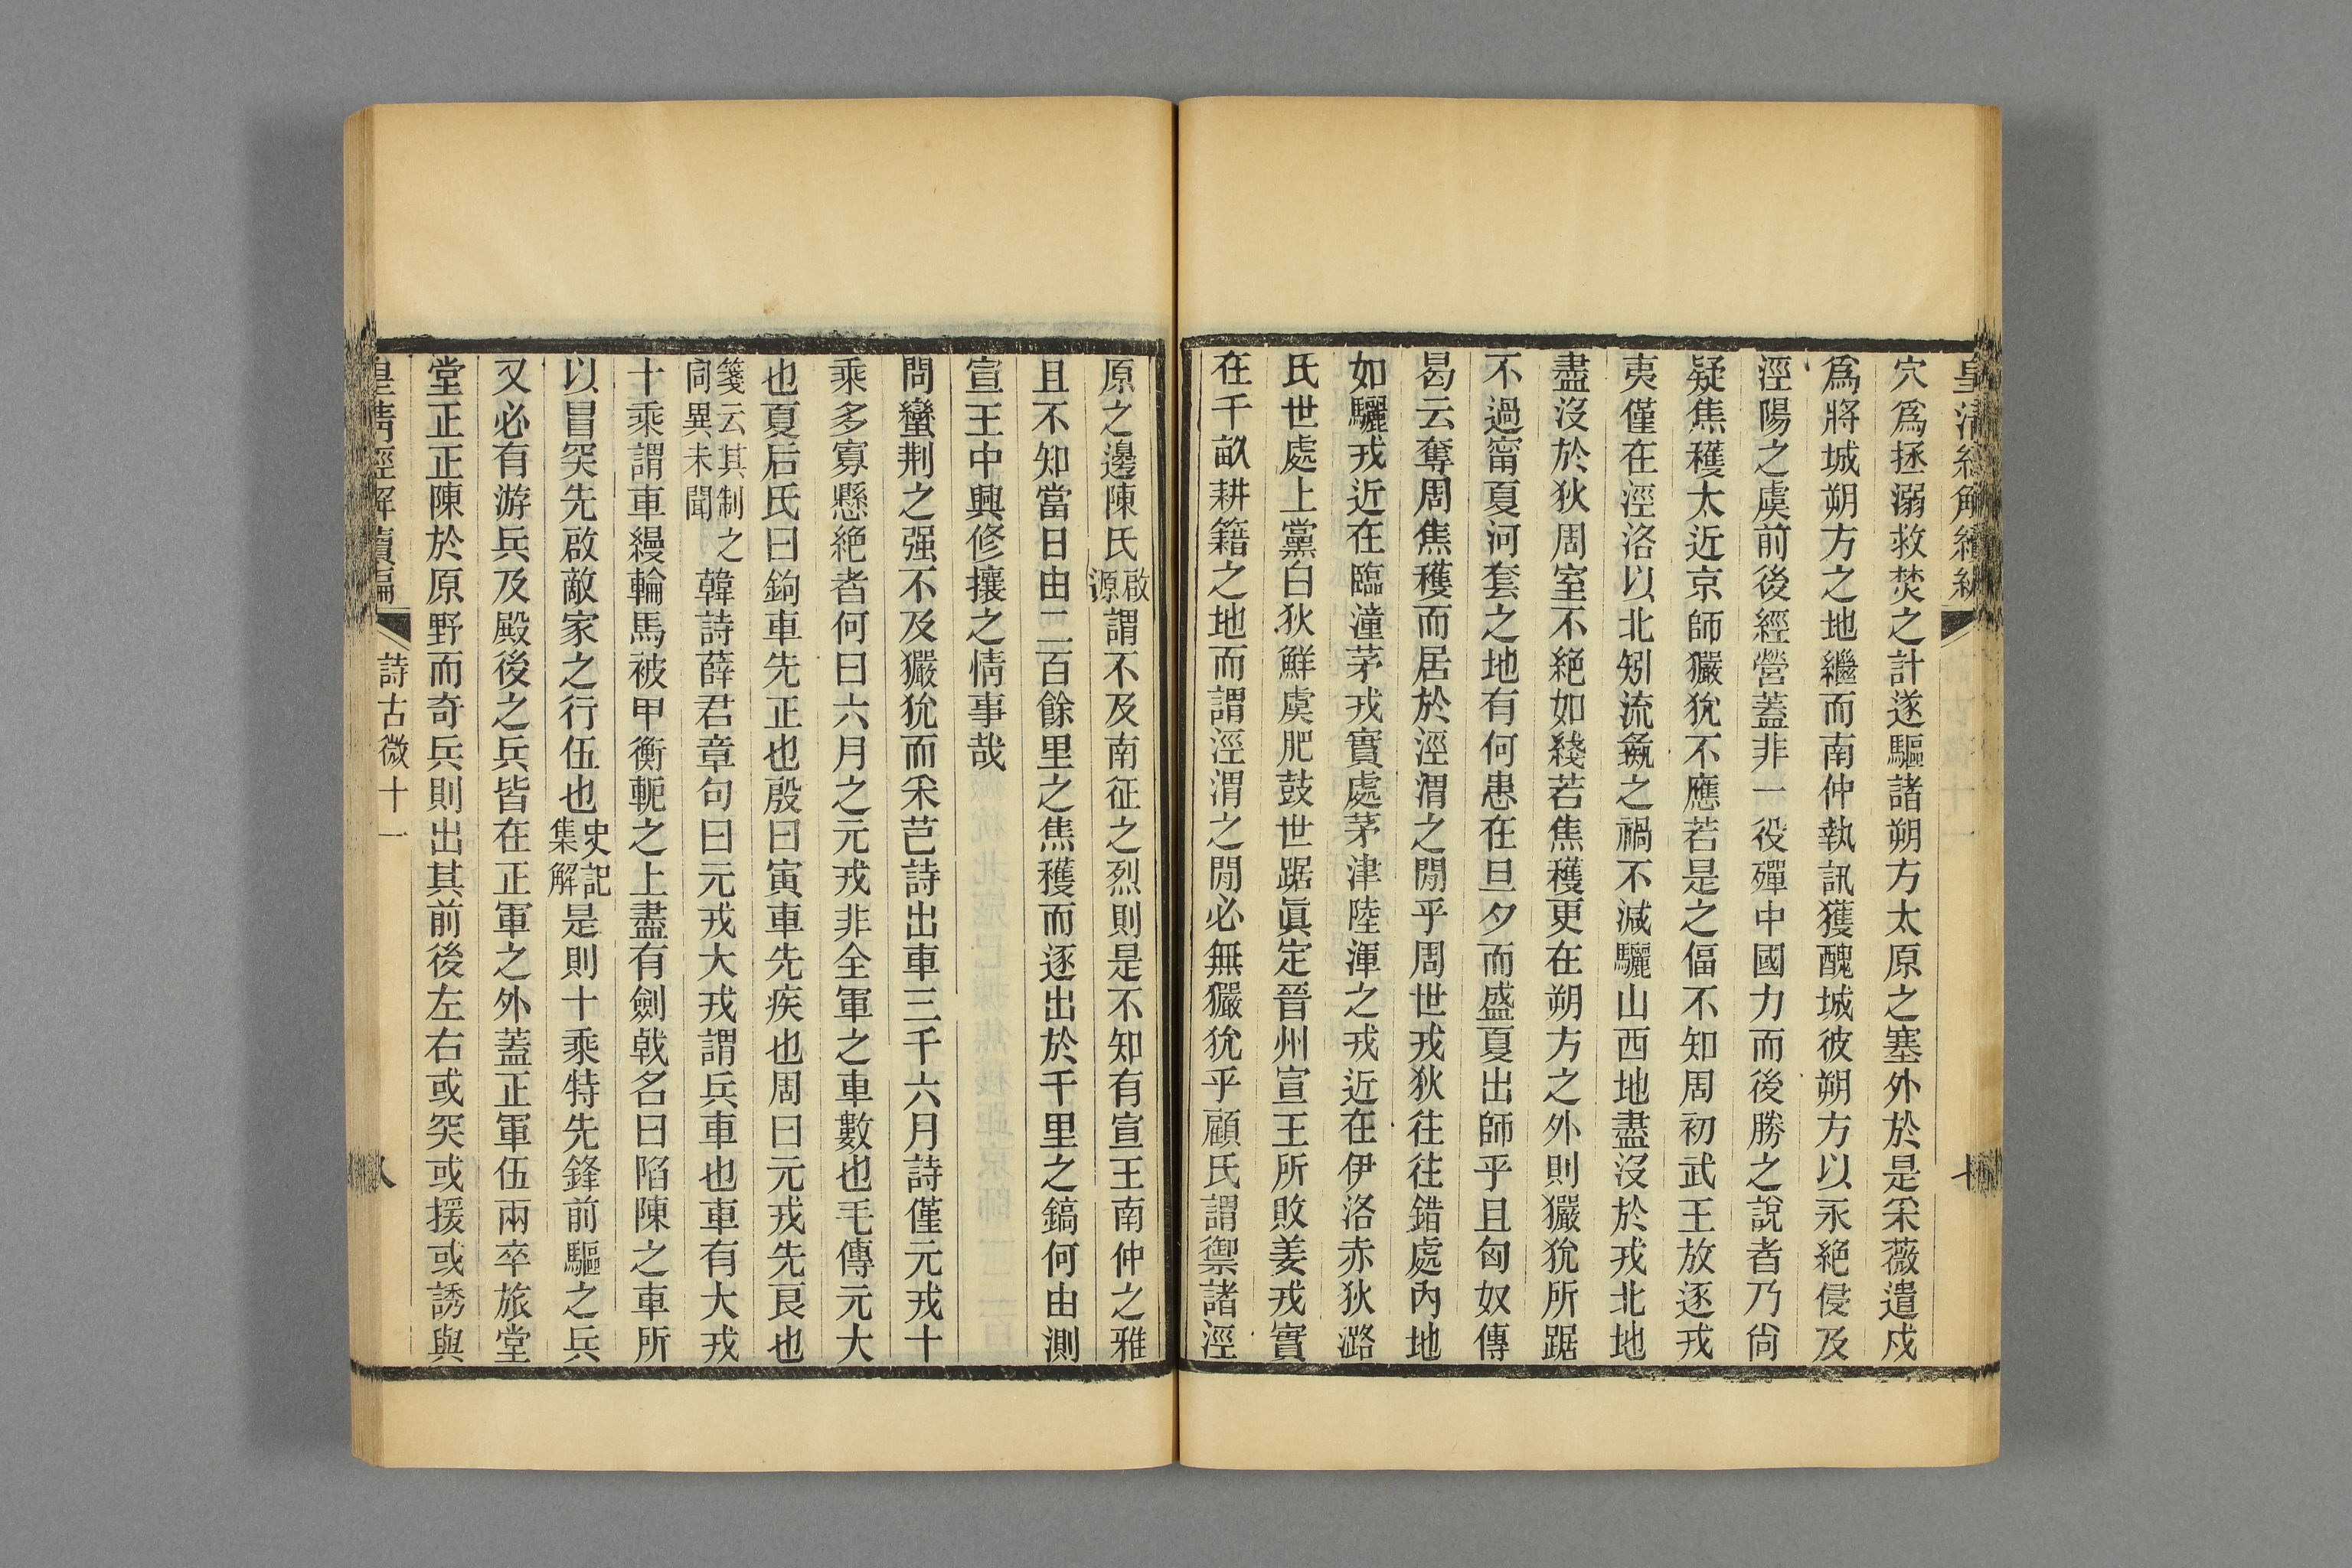 皇清經解續編
穴爲拯溺救焚之計遂驅諸朔方太原之塞外於是采薇遣戍
爲將城朔方之地繼而南仲執訊獲醜城彼朔方以永絕侵及
涇陽之虞前後經營蓋非一役殫中國力而後勝之說者乃尙
疑焦穫太近京師玁狁不應若是之偪不知周初武王放逐戎
夷僅在涇洛以北矧流彘之禍不減驪山西地盡沒於戎北地
盡沒於狄周室不絕如綫若焦穫更在朔方之外則玁狁所踞
不過甯夏河套之地有何患在旦夕而盛夏出師乎且匈奴傳
曷云奪周焦穫而居於涇渭之閒乎周世戎狄往往錯處內地
如驪戎近在臨潼茅戎實處茅津陸渾之戎近在伊洛赤狄潞
氏世處上黨白狄鮮虞肥鼓世踞眞定晉州宣王所敗姜戎實
在千畝耕籍之地而謂涇渭之閒必無玁狁乎顧氏謂禦諸涇
原之邊陳氏啟源謂不及南征之烈則是不知有宣王南仲之雅
且不知當日由二百餘里之焦穫而逐出於千里之鎬何由測
宣王中興修攘之情事哉
問蠻荆之强不及玁狁而采芑詩出車三千六月詩僅元戎十
乘多寡懸絕者何曰六月之元戎非全軍之車數也毛傳元大
也夏后氏曰鉤車先正也殷曰寅車先疾也周曰元戎先良也
箋云其制之同異未聞韓詩薛君章句曰元戎大戎謂兵車也車有大戎
十乘謂車縵輪馬被甲衡軛之上盡有劍戟名曰陷陳之車所
以冒突先啟敵家之行伍也史記集解是則十乘特先鋒前驅之兵
又必有游兵及殿後之兵皆在正軍之外蓋正軍伍兩卒旅堂
堂正正陳於原野而奇兵則出其前後左右或突或援或誘與
皇清經解續編
詩古微十一
八